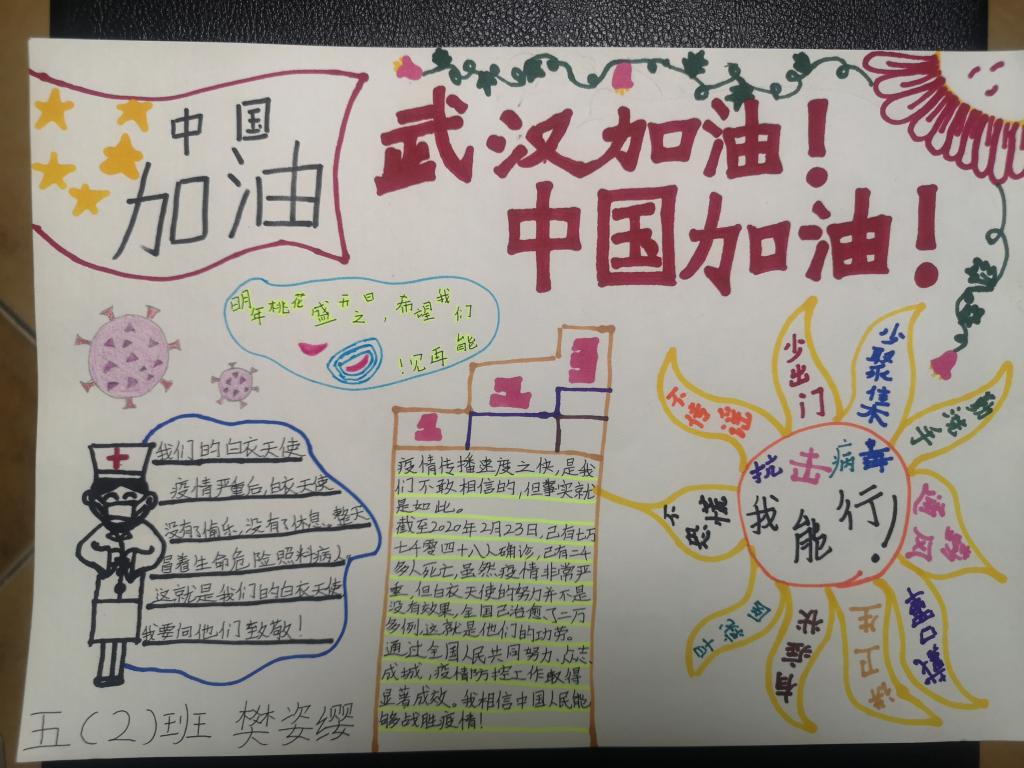 中国
加油
武汉加油！
中国加油！
明年桃花盛开之日
，希望我们
能再见！
我们的白衣天使
疫情严重后,白衣天使
没有了娱乐,没有了休息,整天
冒着生命危险照料病人。
这就是我们的白衣天使
我要向他们致敬！
疫情传播速度之快,是我
们不敢相信的,但事实就
是如此。
截至2020年2月23日,已有七万
七千零四十八人确诊,已有二千
多人死亡,虽然疫情非常严
重,但白衣天使的努力并不是
没有效果,全国已治愈了二万
多例,这就是他们的功劳。
通过全国人民共同努力、众志
成城,疫情防控工作取得
显著成效。我相信中国人民能
够战胜疫情!
抗击病毒
我能行!
不传谣
少出门
少聚集
勤洗手
通风
戴口罩
讲卫生
有症状
早
不恐慌
五(2)班 樊姿缨